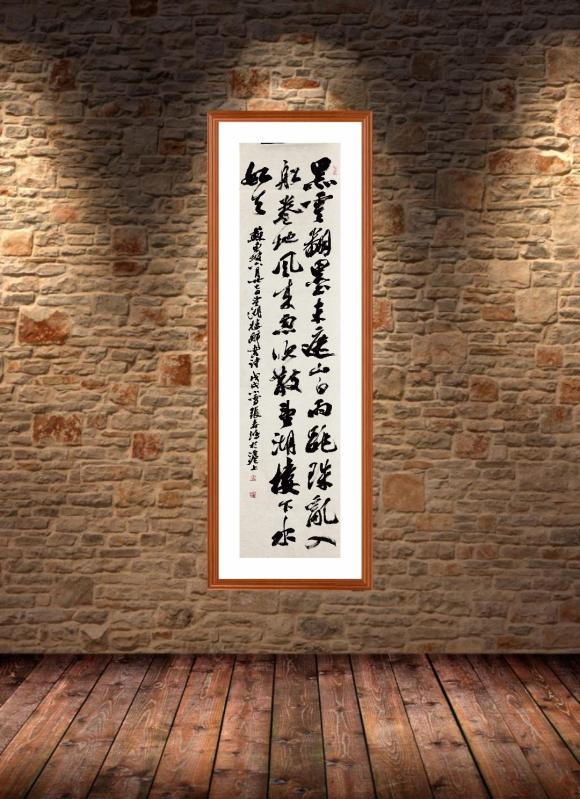 黑雲翻墨未遮山白雨跳珠亂入
船卷地風來忽吹散望湖樓下水
如天 蘇東坡六月廿七日望湖樓醉書詩 戊戌小雪張於滬上